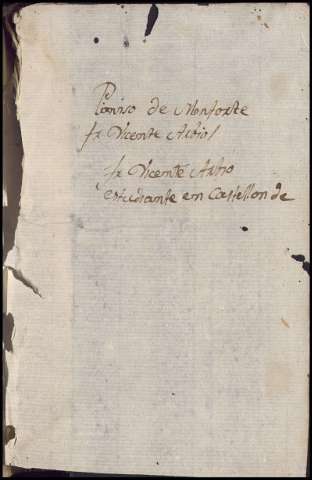 de Monforte
fr Vicente Arbiol
fr Vicente Arbio
estudiante en Castellon de